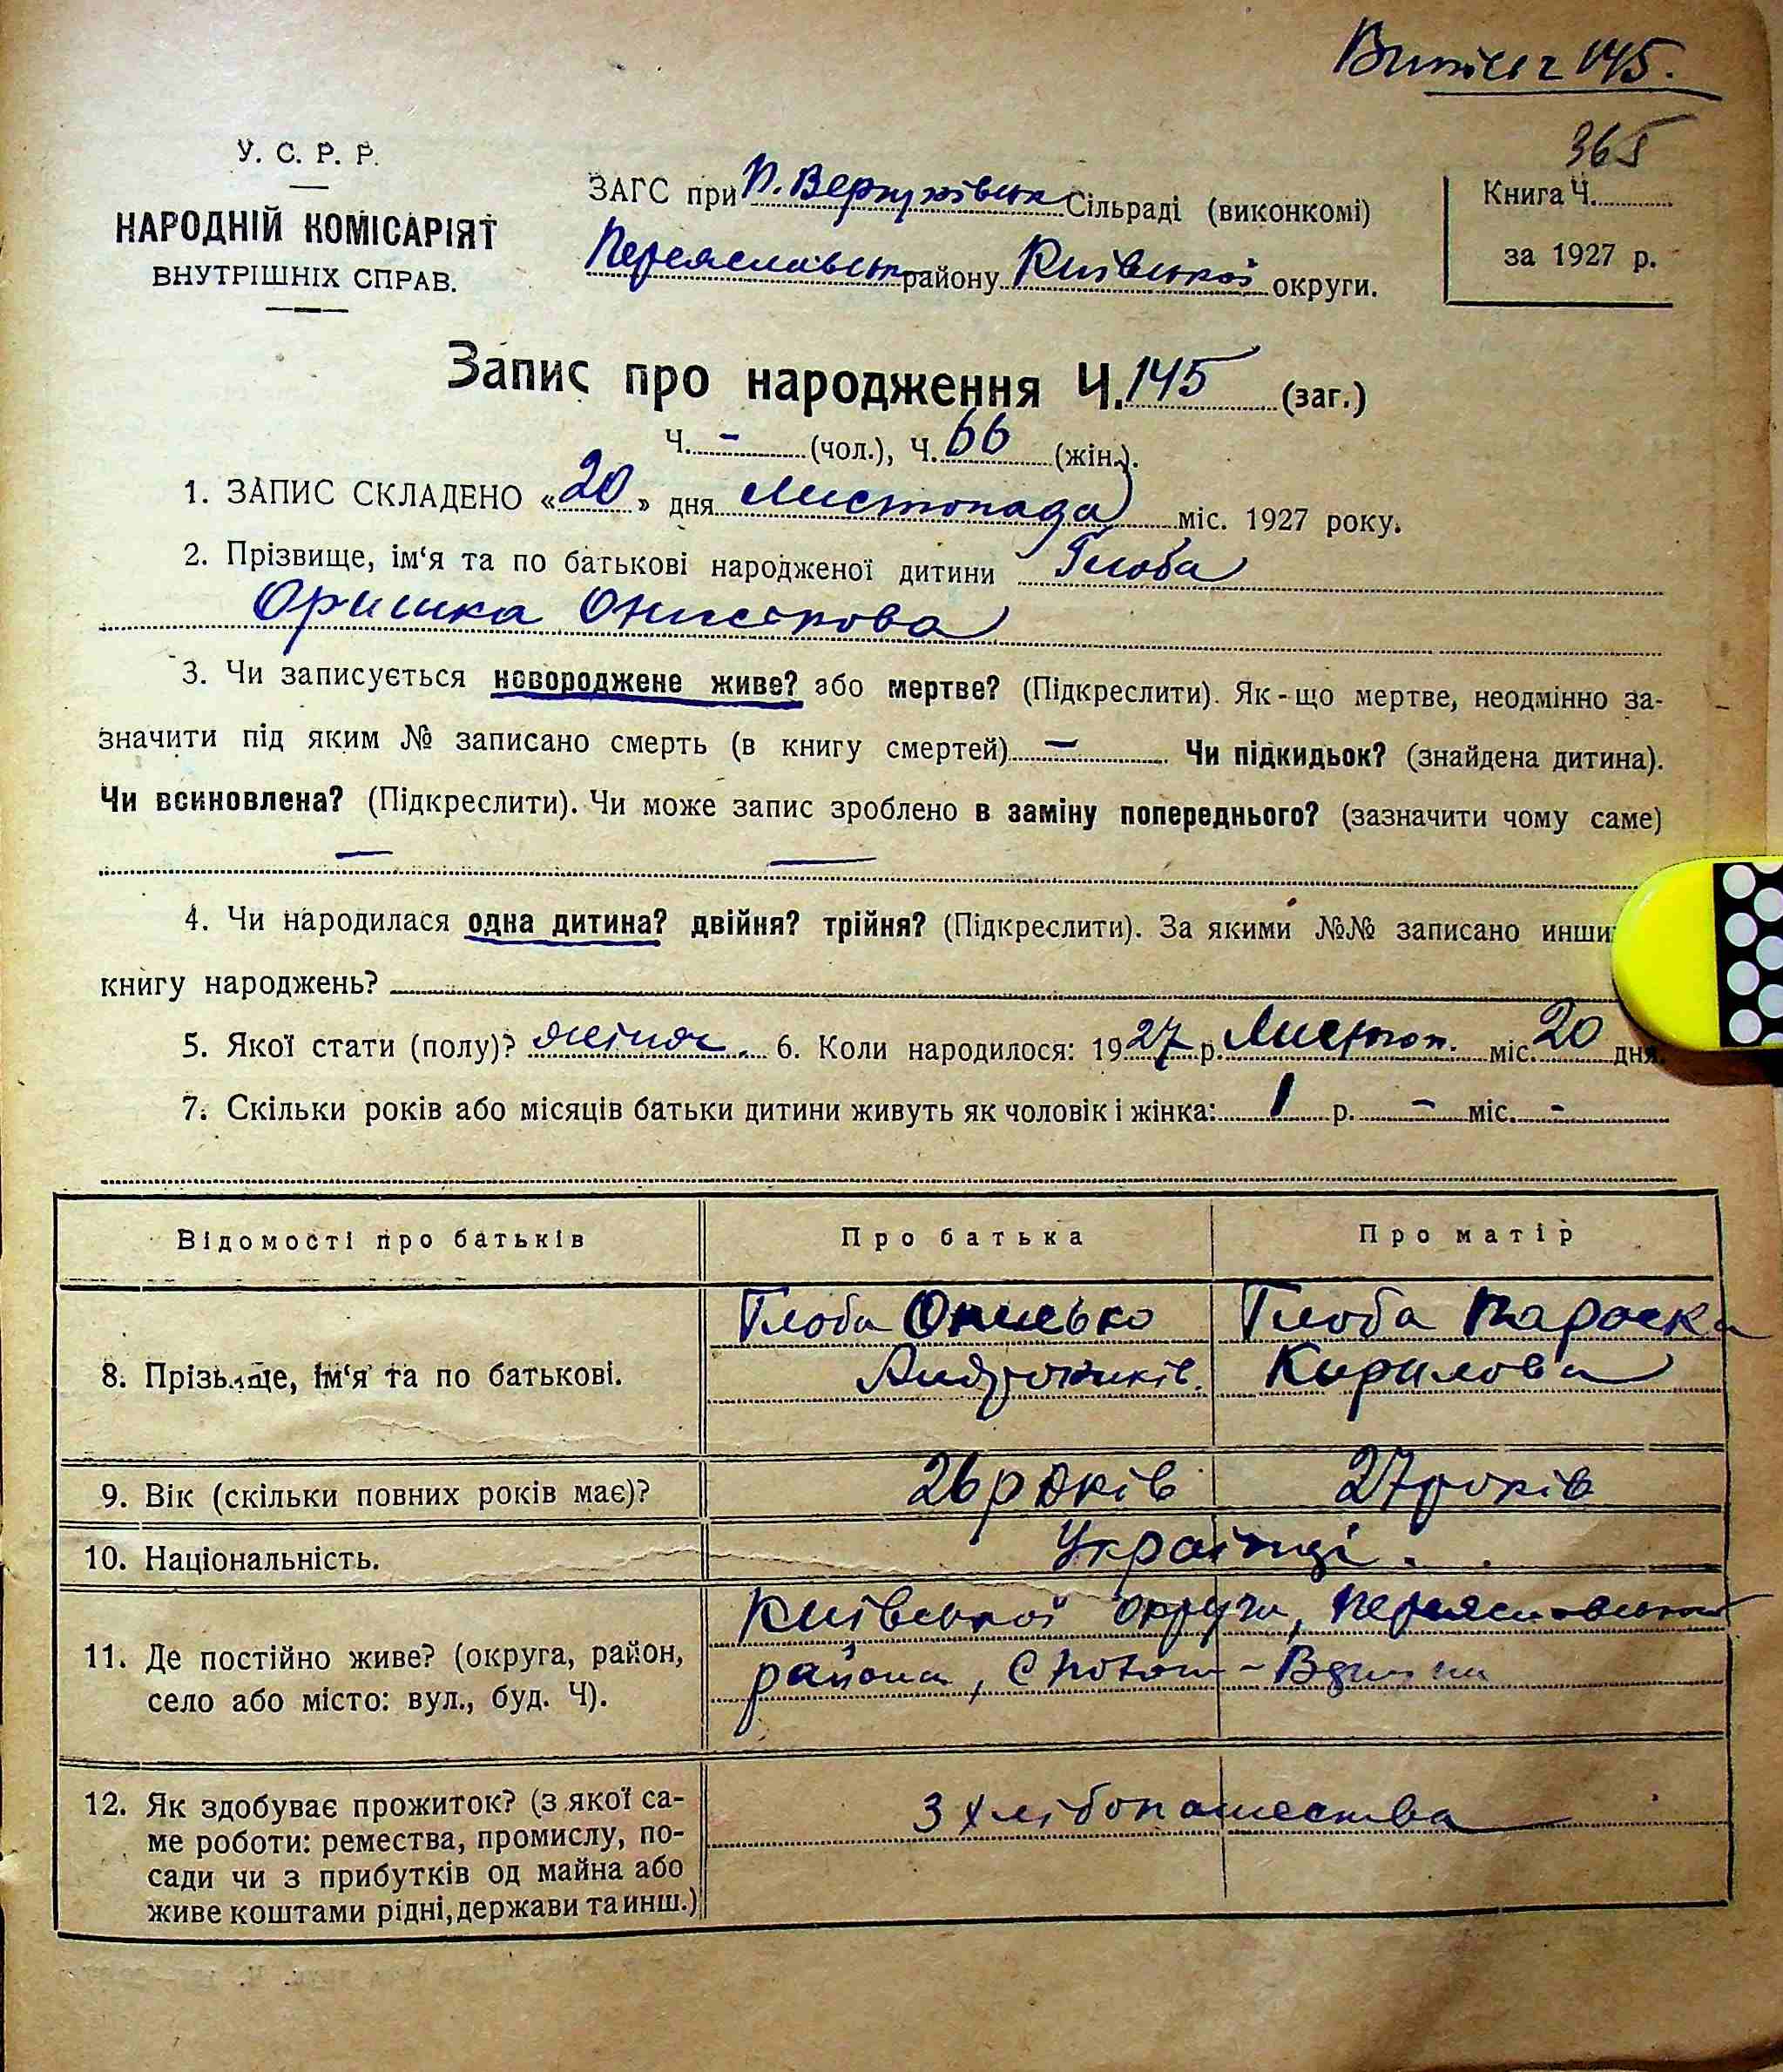 145.
365
У. С. Р. Р.
НАРОДНІЙ КОМІСАРІЯТ
ВНУТРІШНІХ СПРАВ.
ЗАГС при Сільраді (виконкомі)
Переяславськ району Київської округи.
Книга Ч.
за 1927 р.
Запис про народження Ч. 145 (заг.)
Ч. - (чол.), Ч. 66 (жін.).
1. ЗАПИС СКЛАДЕНО «20» дня Листопада міс. 1927 року.
2. Прізвище, ім‘я та по батькові народженої дитини Глоба
Оришка Ониськова
3. Чи записується новороджене живе? або мертве? (Підкреслити). Як-що мертве, неодмінно за-
значити під яким № записано смерть (в книгу смертей) — Чи підкидьок? (знайдена дитина).
Чи всиновлена? (Підкреслити). Чи може запис зроблено в заміну попереднього? (зазначити чому саме)
— —
4. Чи народилася одна дитина? двійня? трійня? (Підкреслити). За якими №№ записано инши
книгу народжень?
5. Якої стати (полу)? жіноч. 6. Коли народилося: 1927 р. Листоп. міс. 20 дня.
7. Скільки років або місяців батьки дитини живуть як чоловік і жінка: 1 р. - міс. -
Відомості про батьків Про батька Про матір
8. Прізвище, ім‘я та по батькові.
Глоба Онисько
Глоба Параска
Кирилова
9. Вік (скільки повних років має)? 26 років 27 років
10. Національність. Українці.
11. Де постійно живе? (округа, район,
село або місто: вул., буд. Ч).
Київської округи, Переяславського
района, с
12. Як здобуває прожиток? (з якої са-
ме роботи: ремества, промислу, по-
сади чи з прибутків од майна або
живе коштами рідні, держави та инш.)
З хлібопашества